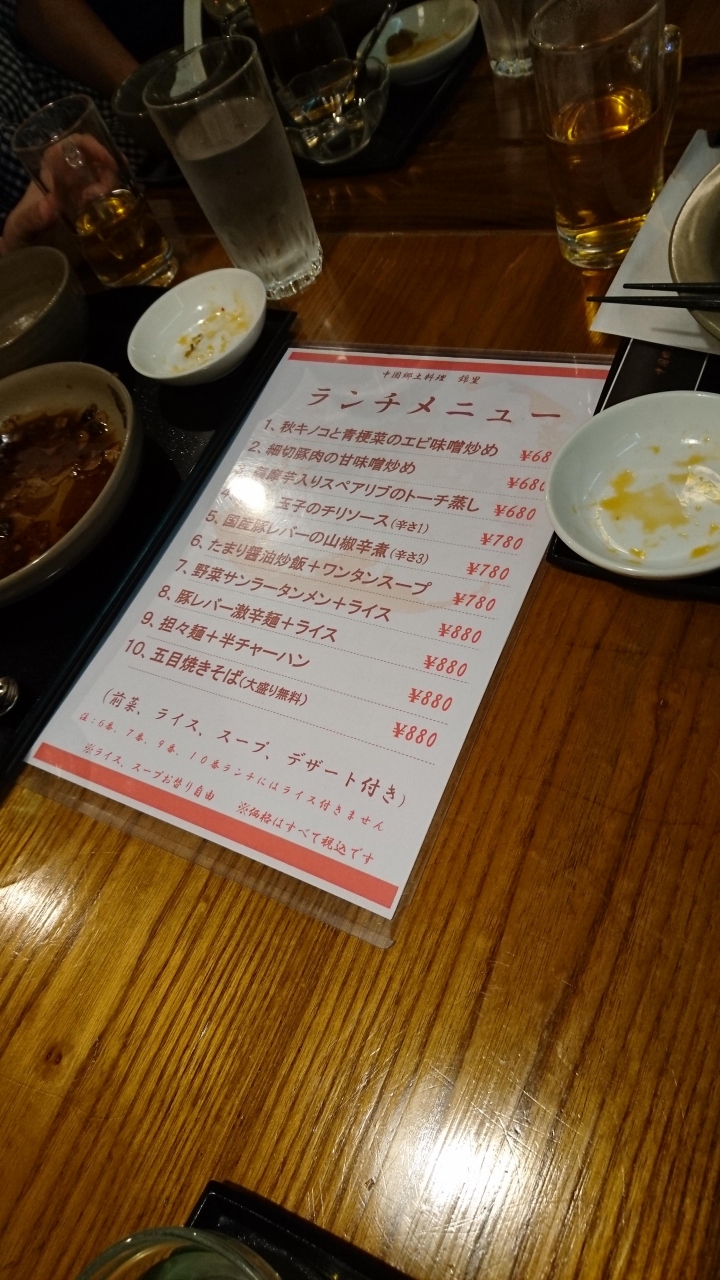 中国郷土料理 錦里
ランチメニュー
1、秋キノコと青梗菜のエビ味噌炒め ¥68
2、細切豚肉の甘味噌炒め ¥680
摩芋入りスペアリブのトーチ蒸し ¥680
4、 玉子のチリソース(辛さ1) ¥780
5、国産豚レバーの山椒辛煮(辛さ3) ¥780
6、たまり醤油炒飯+ワンタンスープ ¥780
7、野菜サンラータンメン+ライス ¥880
8、豚レバー激辛麺+ライス ¥880
9、担々麺+半チャーハン ¥880
10、五目焼きそば(大盛り無料) ¥880
(前菜、ライス、スープ、デザート付き)
注:6番、7番、9番、10番ランチにはライス付きません
※ライス、スープお替り自由 ※価格はすべて税込です